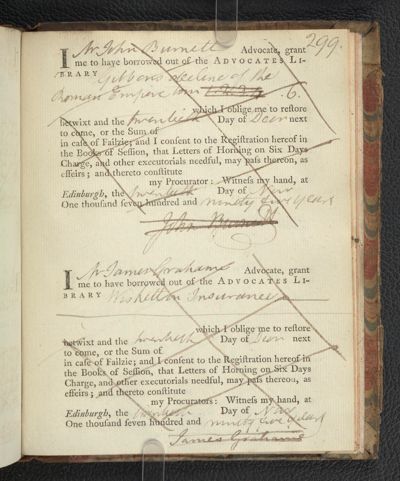 299.
I Mr John Burnett Advocate, grant
me to have borrowed out of the ADVOCATES LI-
BRARY Gibbons decline of the
Roman Empire tom 1. 2. 3. 4. 6.
which I oblige me to reſtore
betwixt and the twentieth Day of Decr next
to come, or the Sum of
in caſe of Failzie; and I conſent to the Regiſtration hereof in
the Books of Seſſion, that Letters of Horning on Six Days
Charge, and other executorials needful, may paſs thereon, as
effeirs; and thereto conſtitute
my Procurator: Witneſs my hand, at
Edinburgh, the twentieth Day of Novr
One thouſand ſeven hundred and ninety five years
John Burnett
I Mr James Grahame Advocate, grant
me to have borrowed out of the ADVOCATES LI-
BRARY Weskett on Insurance
which I oblige me to reſtore
betwixt and the twentieth Day of Decr next
to come, or the Sum of
in caſe of Failzie; and I conſent to the Regiſtration hereof in
the Books of Seſſion, that Letters of Horning on Six Days
Charge, and other executorials needful, may paſs thereon, as
effeirs; and thereto conſtitute
my Procurators: Witneſs my hand, at
Edinburgh, the twentieth Day of Novr
One thouſand ſeven hundred and ninety five years
James Grahame